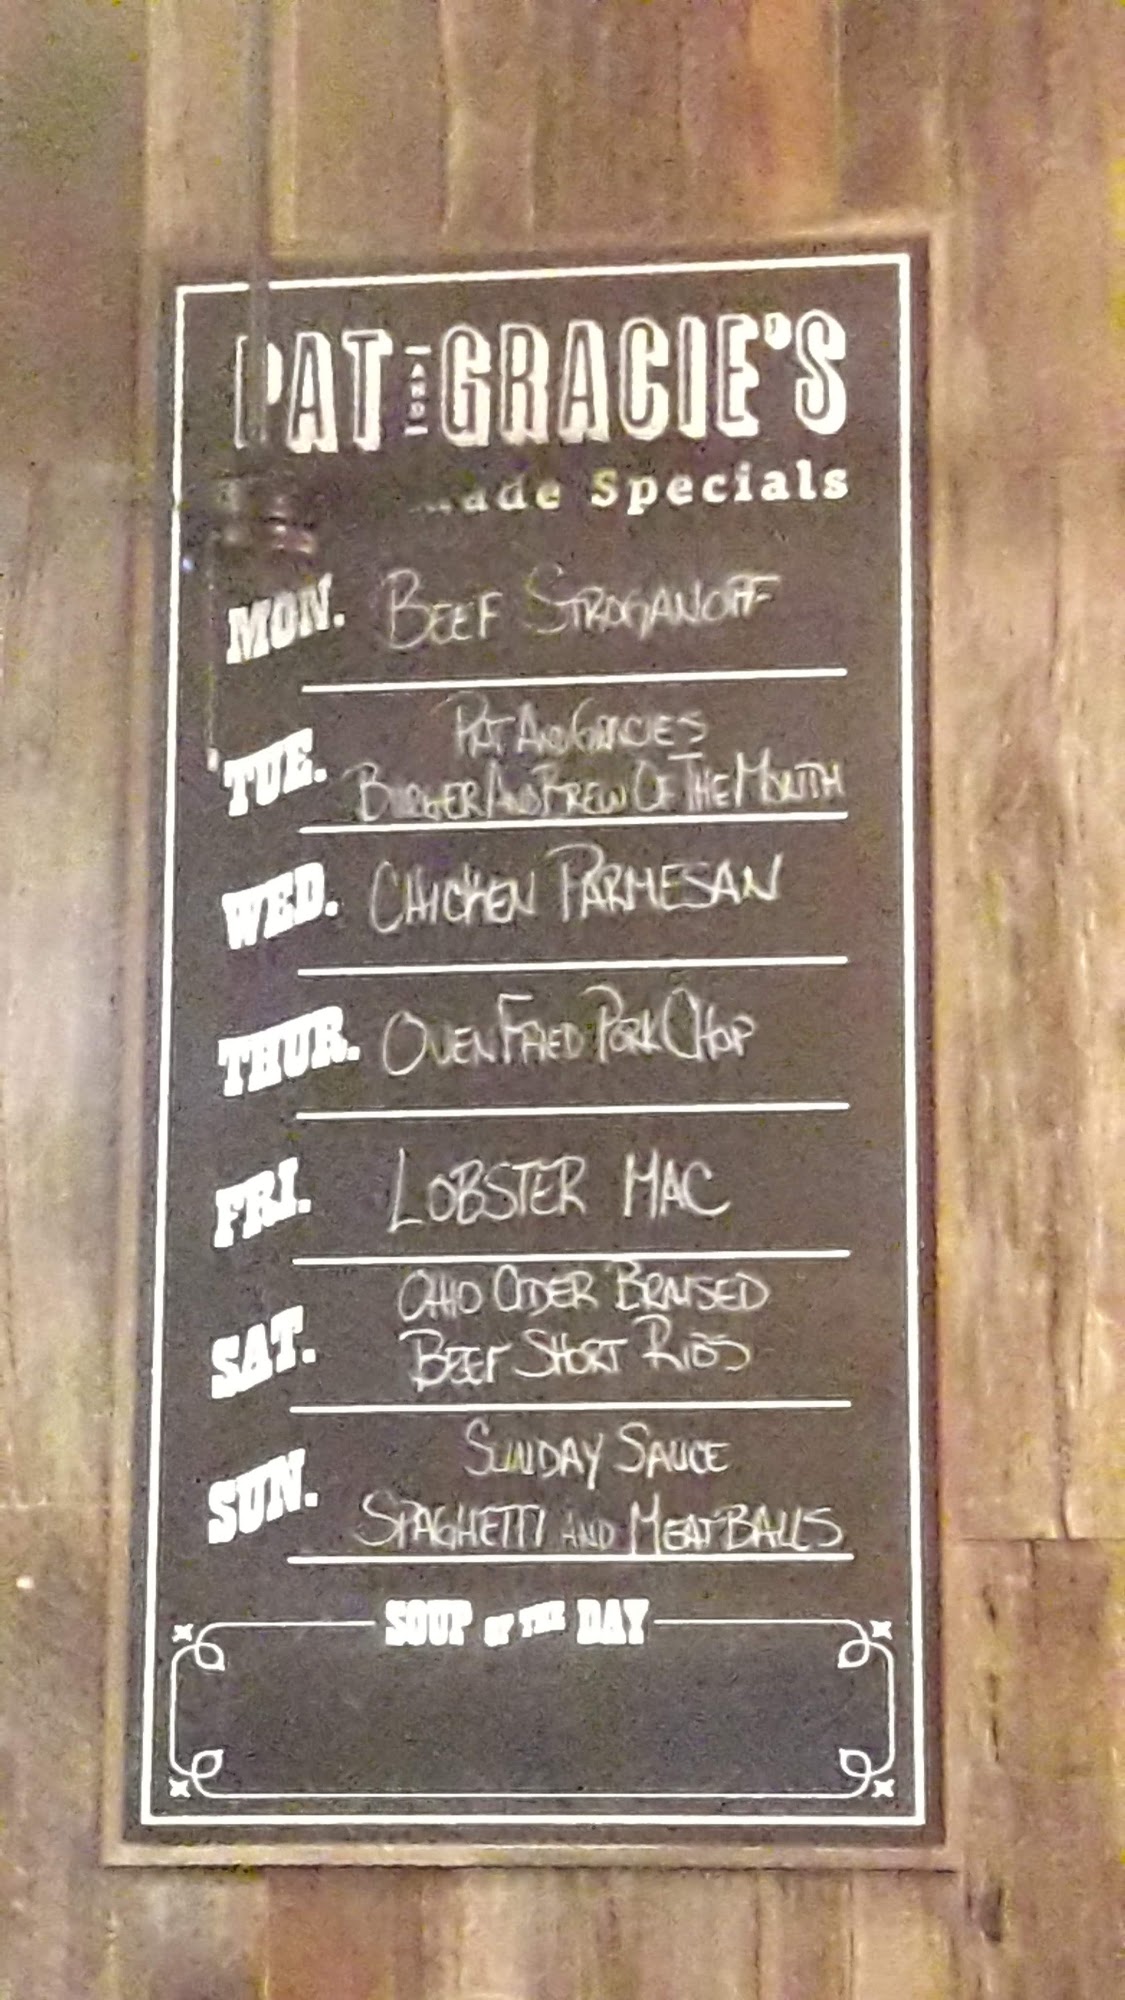 PAT AND GRACIE'S
Specials
MON. BEEF STROGANOFF
PAT AND GRACIES
TUE. BURGER AND BREW OF THE MONTH
WED. CHICKEN PARMESAN
THUR. OVEN FRIED PORK CHOP
FRI. LOBSTER MAC
OHIO CIDER BRAISED
SAT. BEEF SHORT RIBS
SUNDAY SAUCE
SUN. SPAGHETTI AND MEATBALLS
SOUP OF THE DAY